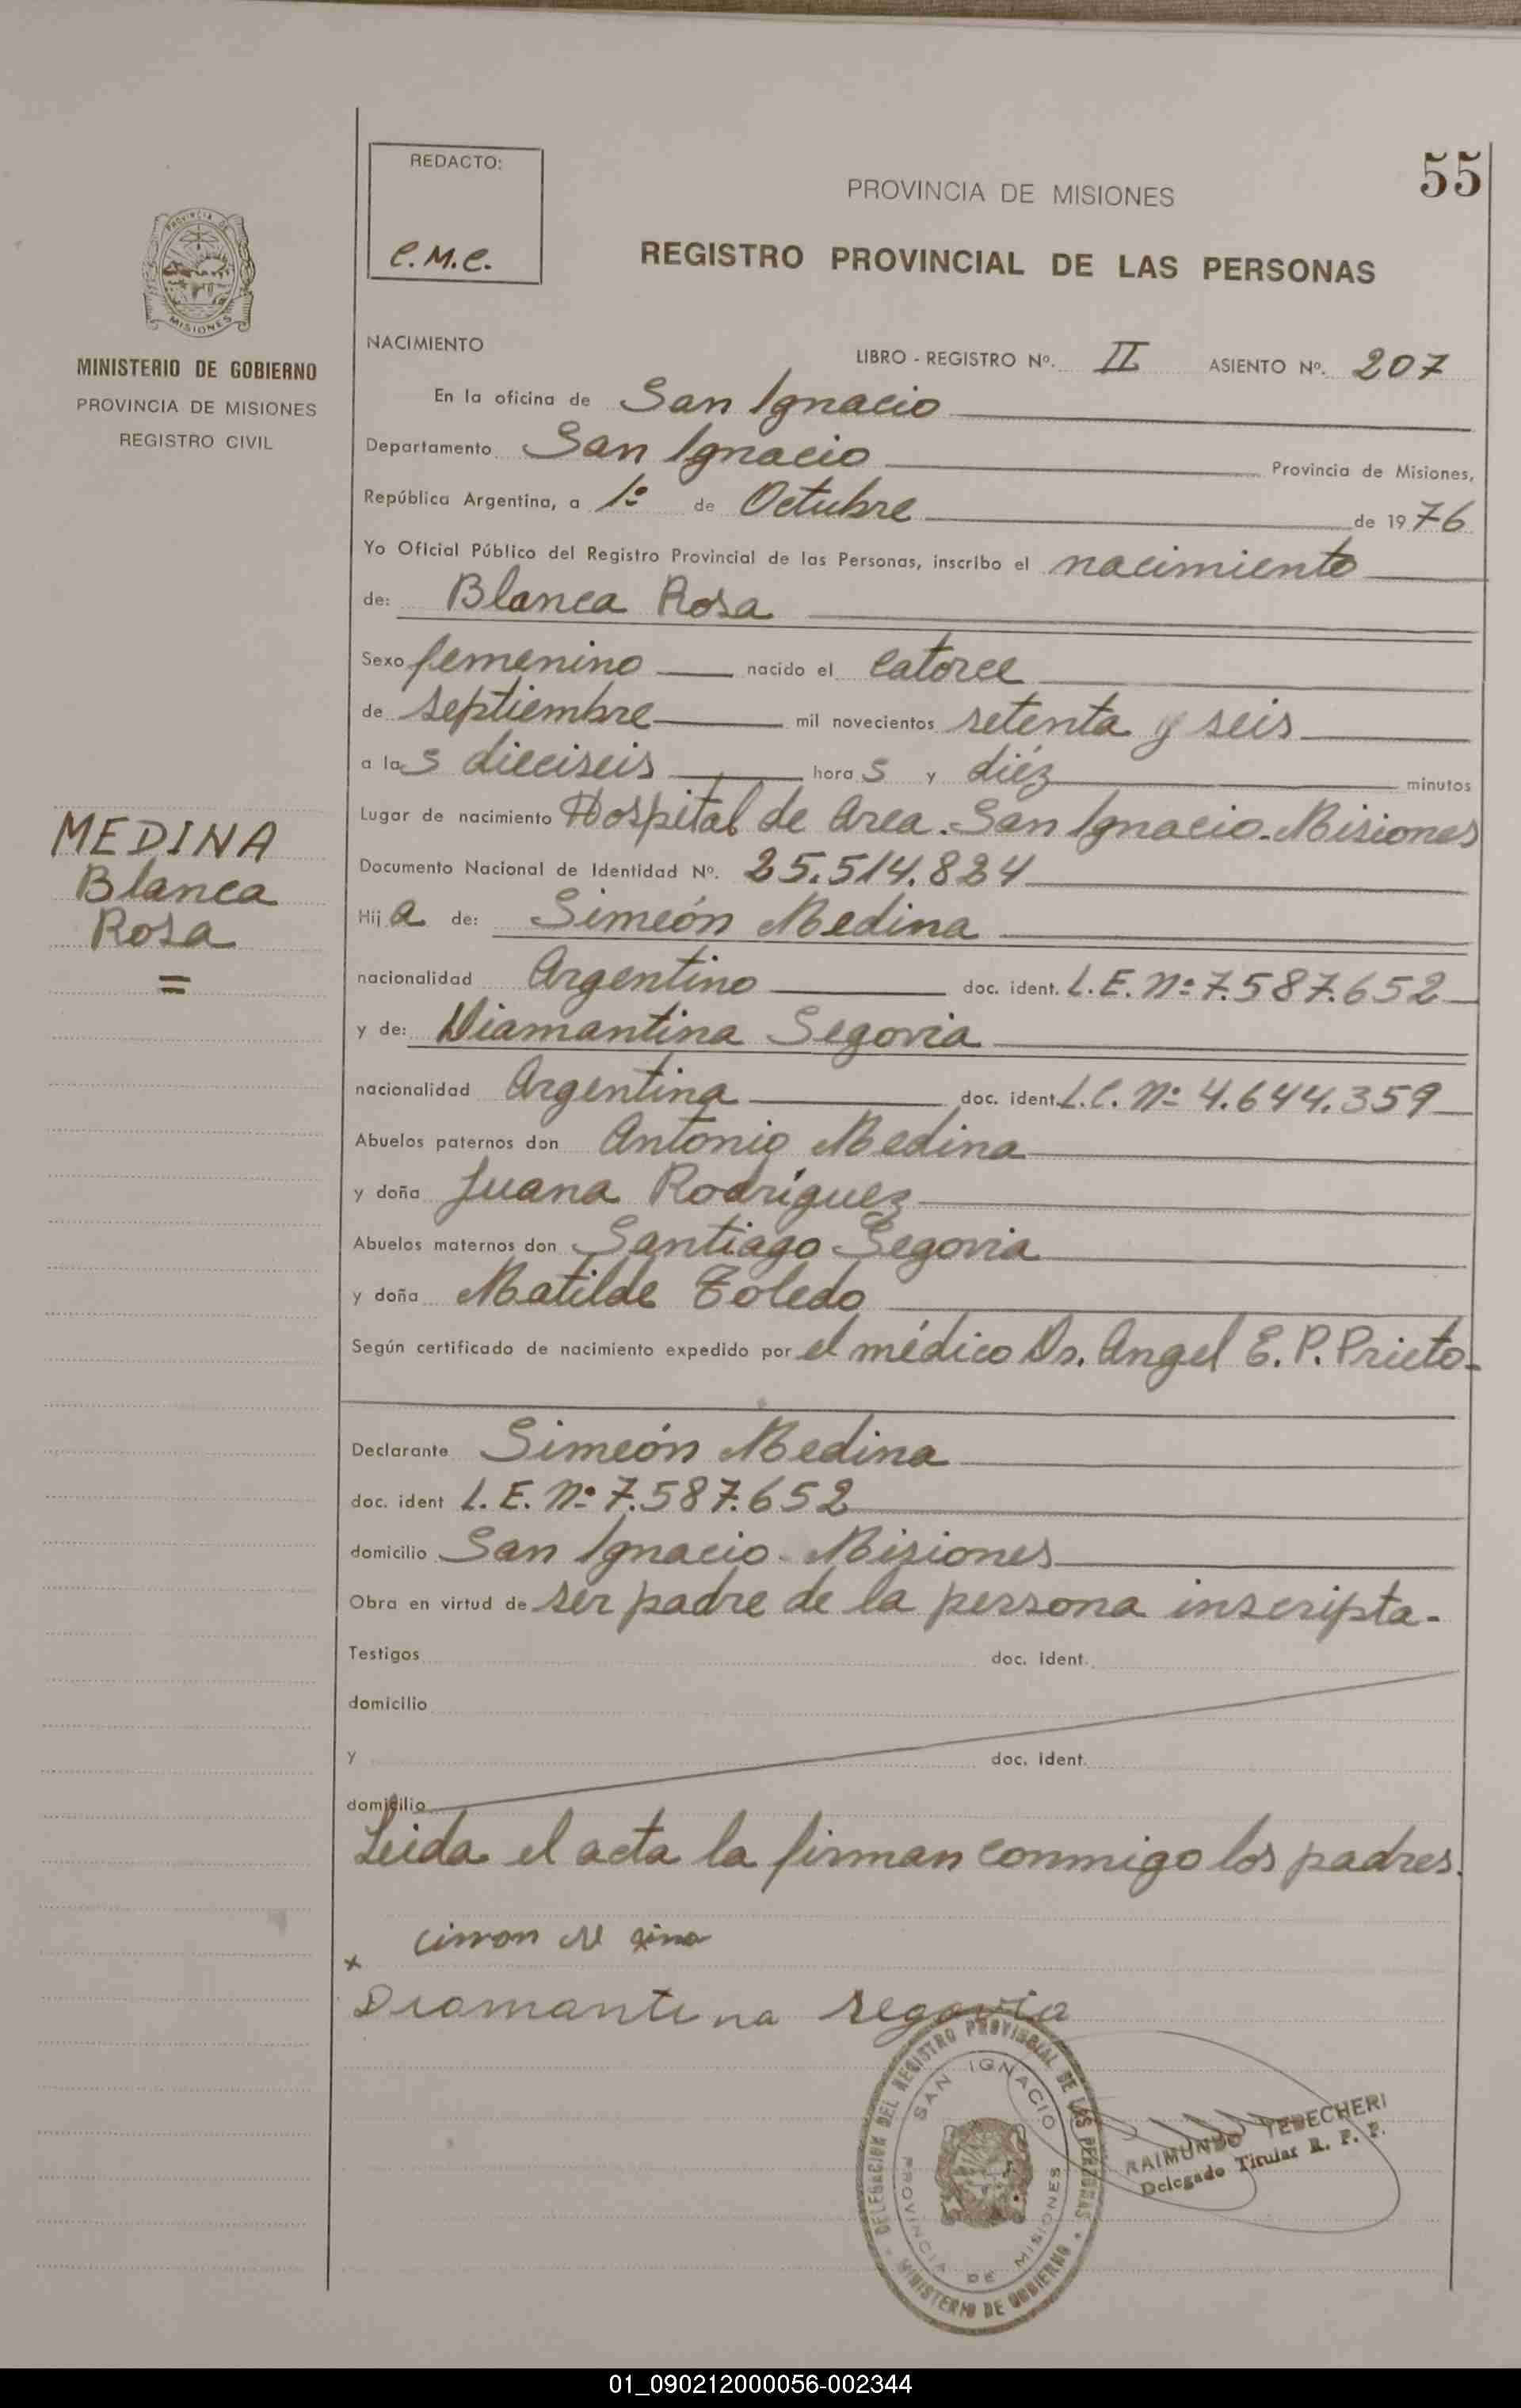 REDACTO:
C.M.C.
55
PROVINCIA DE MISIONES
REGISTRO PROVINCIAL DE LAS PERSONAS
PROVINCIA DE
MISIONES
MINISTERIO DE GOBIERNO
PROVINCIA DE MISIONES
REGISTRO CIVIL
NACIMIENTO
LIBRO - REGISTRO Nº. II ASIENTO Nº. 207
En la oficina de San Ignacio
Departamento San Ignacio Provincia de Misiones,
República Argentina, a 1º de Octubre de 1976
Yo Oficial Público del Registro Provincial de las Personas, inscribo el nacimiento
de: Blanca Rosa
Sexo femenino nacido el catorce
de septiembre mil novecientos setenta y seis
a las dieciseis horas y diéz minutos
Lugar de nacimiento Hospital de Area. San Ignacio. Misiones
MEDINA
Blanca
Rosa
=
Documento Nacional de Identidad Nº. 25.514.824
Hija de: Simeón Medina
nacionalidad Argentino doc. ident. L.E. Nº 7.587.652
y de: Diamantina Segovia
nacionalidad Argentina doc. ident. L.C. Nº 4.644.359
Abuelos paternos don Antonio Medina
y doña Juana Rodríguez
Abuelos maternos don Santiago Segovia
y doña Matilde Toledo
Según certificado de nacimiento expedido por el médico Dr. Angel E. P. Prieto-
Declarante Simeón Medina
doc. ident L. E. Nº 7.587.652
domicilio San Ignacio. Misiones
Obra en virtud de ser padre de la persona inscripta.
Testigos doc. ident.
domicilio
y doc. ident.
domicilio
Leida el acta la firman conmigo los padres.
x
Diamantina segovia
DELEGACION DEL REGISTRO PROVINCIAL DE LAS PERSONAS
SAN IGNACIO
PROVINCIA DE MISIONES
MINISTERIO DE GOBIERNO
RAIMUNDO TEDECHERI
Delegado Titular R. P. P.
01_090212000056-002344